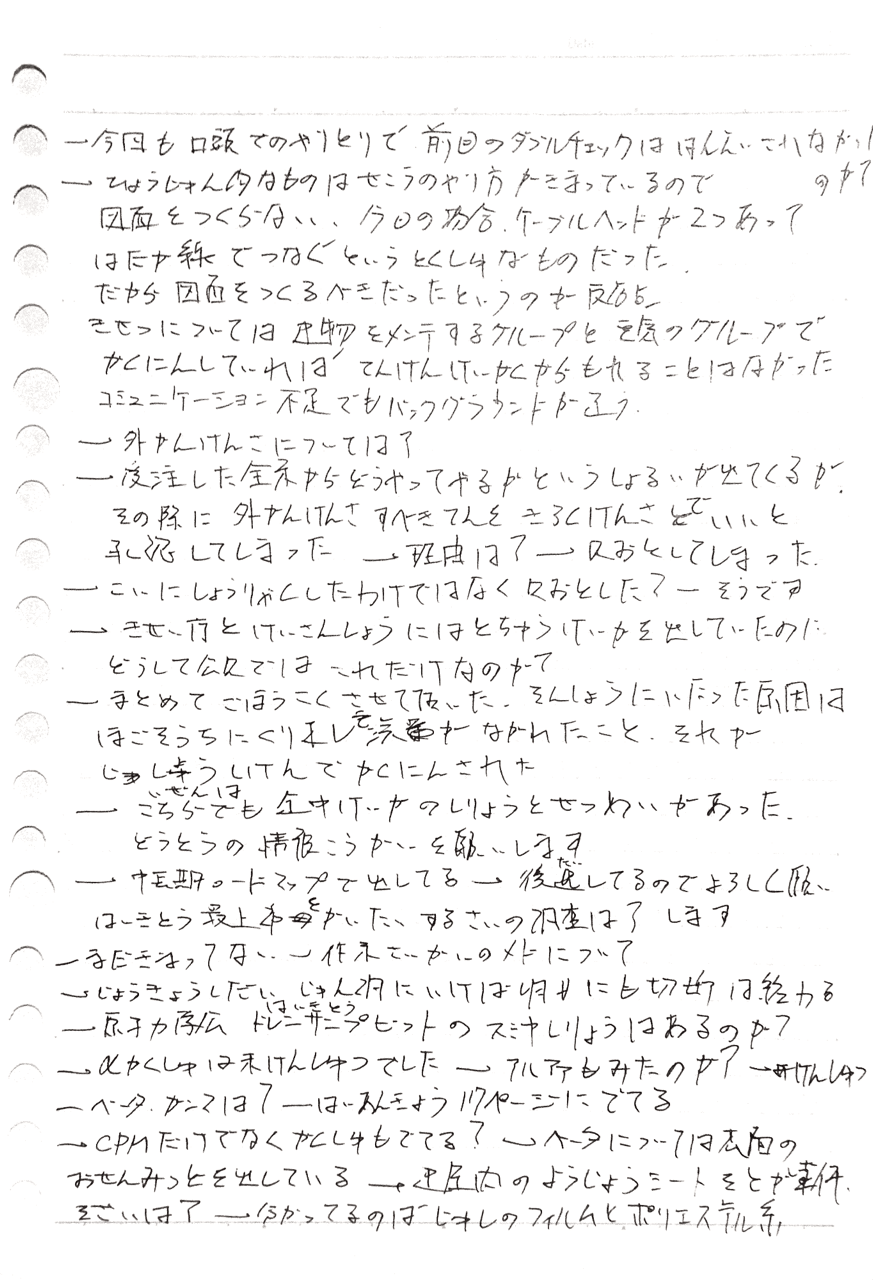 ー今回も口頭でのやりとりで前回のダブルチェックははんえいされなかった
のか?
ー ひょうじゅん的なものはせこうのやり方がきまっているので
図面をつくらない、今回の場合、ケーブルヘッドが2つあって
はだか線でつなぐというとくしゅなものだった、
だから図面をつくるべきだったというのが反省点
きせつについては建物をメンテするグループと電気のグループで
かくにんしていればてんけんけいかくからもれることはなかった
コミュニケーション不足でもバックグラウンドが違う。
ー 外かんけんさについては?
ー 受注した会社からどうやってやるかというしょるいが出てくるが、
その際に外かんけんさすべきてんをきろくけんさでいいと
承認してしまった ー理由は? ー 見おとしてしまった.
ー こいにしょうりゃくしたわけではなく見おとした? ー そうです
ー きせい庁とけいさんしょうにはとちゅうけいかを出していたのに
どうして公表ではこれだけなのか?
ー まとめてごほうこくさせて頂いた、そんしょうにいたった原因は
ほごそうちにくり返し電流がながれたこと、それが
じっしょうしけんでかくにんされた
ー こちらでも 企中けいかのしりょうとせつめいがあった.
じぜんは
とうとうの情報こうかいを願いします
ー 中長期ロードマップで出してる ー 後退してるのでよろしく願い
します
はいきとう最上部をかいたいするさいの調査は?
ーまだきまってない ー作業さいかいのメドについて
ーじょうきょうしだい、じゅん調にいけば明日にも切断は終わる
ー原子力学会 ドレンサンプピットのスミヤしりょうはあるのか?
はいきとう
ーαかくしゅは未けんしゅつでした ー アルファもみたのか? ー未けんしゅつ
ーベータ.ガンマは? ーはいふしりょう17ページにでてる
ーCPMだけでなくかくしゅもでてる? ー ベータについては表面の
おせんみつどを出している ー 建屋内のようじょうシートなどが事件、
そざいは? ー 分かってるのはビニールのフィルムとポリエステル系